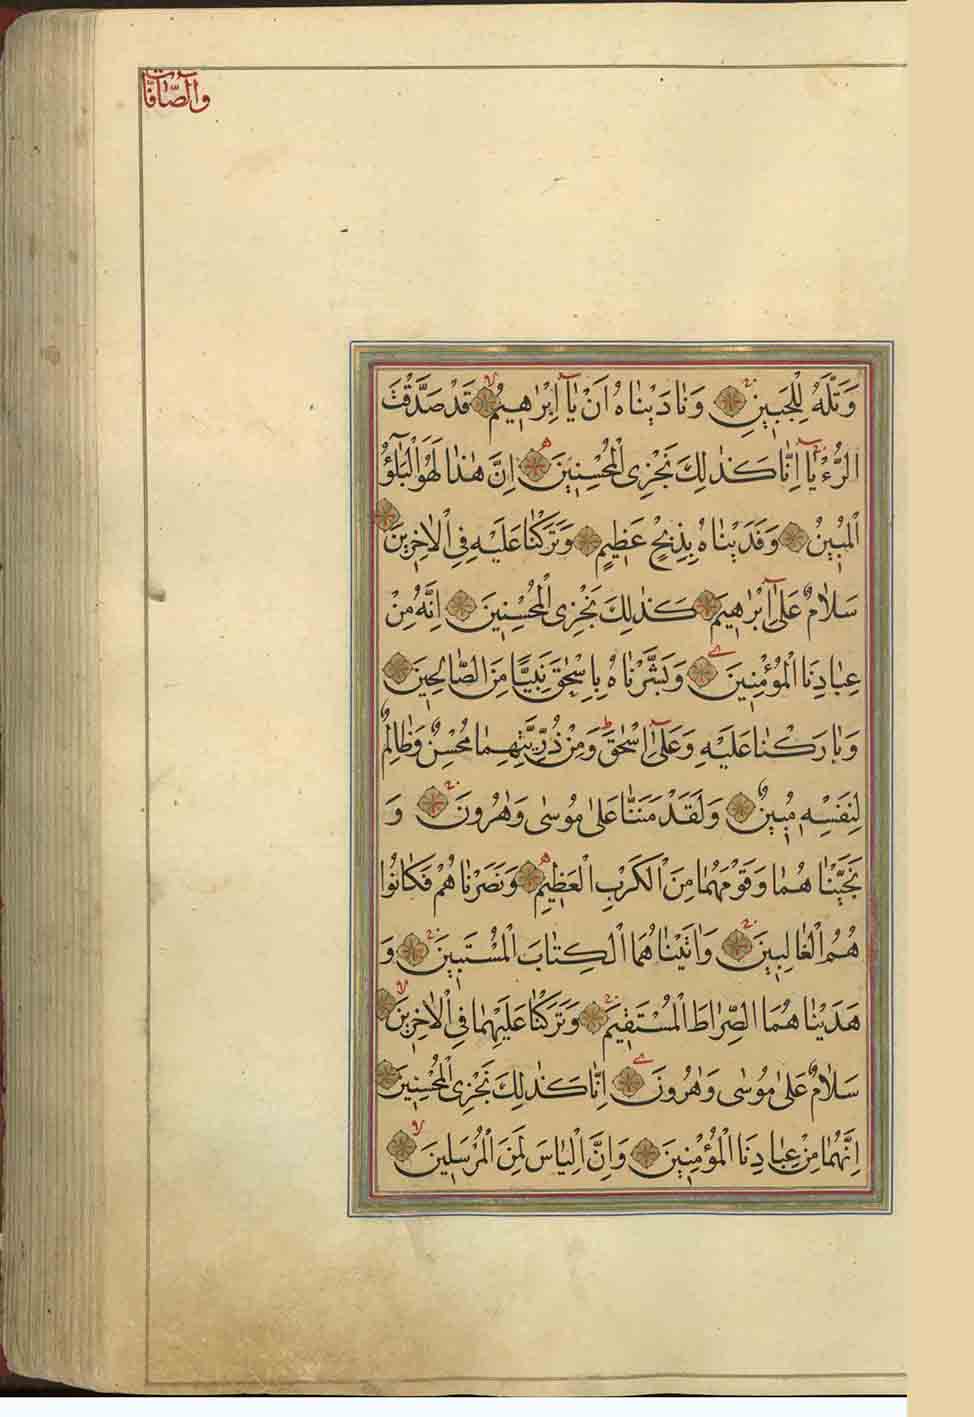 والصّافّات
وَتَلَّهُ لِلْجَبينِ وَنَادَيْنَاهُ اَنْ يَآ اِبْرٰهيمُ قَدْ صَدَّقْتَ
الرُّءْيَآ اِنَّا كَذٰلِكَ نَجْزِى الْمُحْسِنينَ اِنَّ هٰذَا لَهُوَ الْبَلٰٓؤُا
الْمُبينُ وَفَدَيْنَاهُ بِذِبْحٍ عَظيمٍ وَتَرَكْنَا عَلَيْهِ فِى الْاٰخِرينَ
سَلَامٌ عَلٰٓى اِبْرٰهيمَ كَذٰلِكَ نَجْزِى الْمُحْسِنينَ اِنَّهُ مِنْ
عِبَادِنَا الْمُؤْمِنينَ وَبَشَّرْنَاهُ بِاِسْحٰقَ نَبِيًّا مِنَ الصَّالِحينَ
وَبَارَكْنَا عَلَيْهِ وَعَلٰٓى اِسْحٰقَ وَمِنْ ذُرِّيَّتِهِمَا مُحْسِنٌ وَظَالِمٌ
لِنَفْسِه مُبينٌ وَلَقَدْ مَنَنَّا عَلٰى مُوسٰى وَهٰرُونَ وَ
نَجَّيْنَاهُمَا وَقَوْمَهُمَا مِنَ الْكَرْبِ الْعَظيمِ وَنَصَرْنَاهُمْ فَكَانُوا
هُمُ الْغَالِبينَ وَاٰتَيْنَاهُمَا الْكِتَابَ الْمُسْتَبينَ وَ
هَدَيْنَاهُمَا الصِّرَاطَ الْمُسْتَقيمَ وَتَرَكْنَا عَلَيْهِمَا فِى الْاٰخِرينَ
سَلَامٌ عَلٰى مُوسٰى وَهٰرُونَ اِنَّا كَذٰلِكَ نَجْزِى الْمُحْسِنينَ
اِنَّهُمَا مِنْ عِبَادِنَا الْمُؤْمِنينَ وَاِنَّ اِلْيَاسَ لَمِنَ الْمُرْسَلينَ